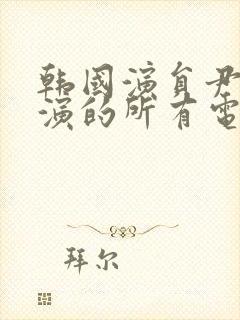 韩國演員尹
演的所有電
拜尔